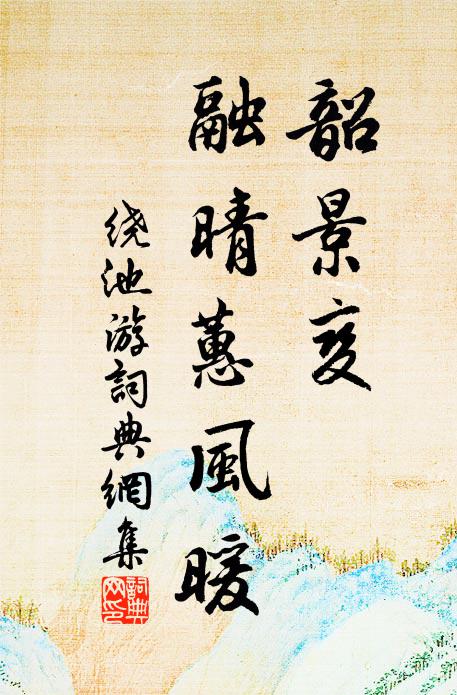 韶景变
融晴蕙風暖
绕池游詞典網集
詞典网印